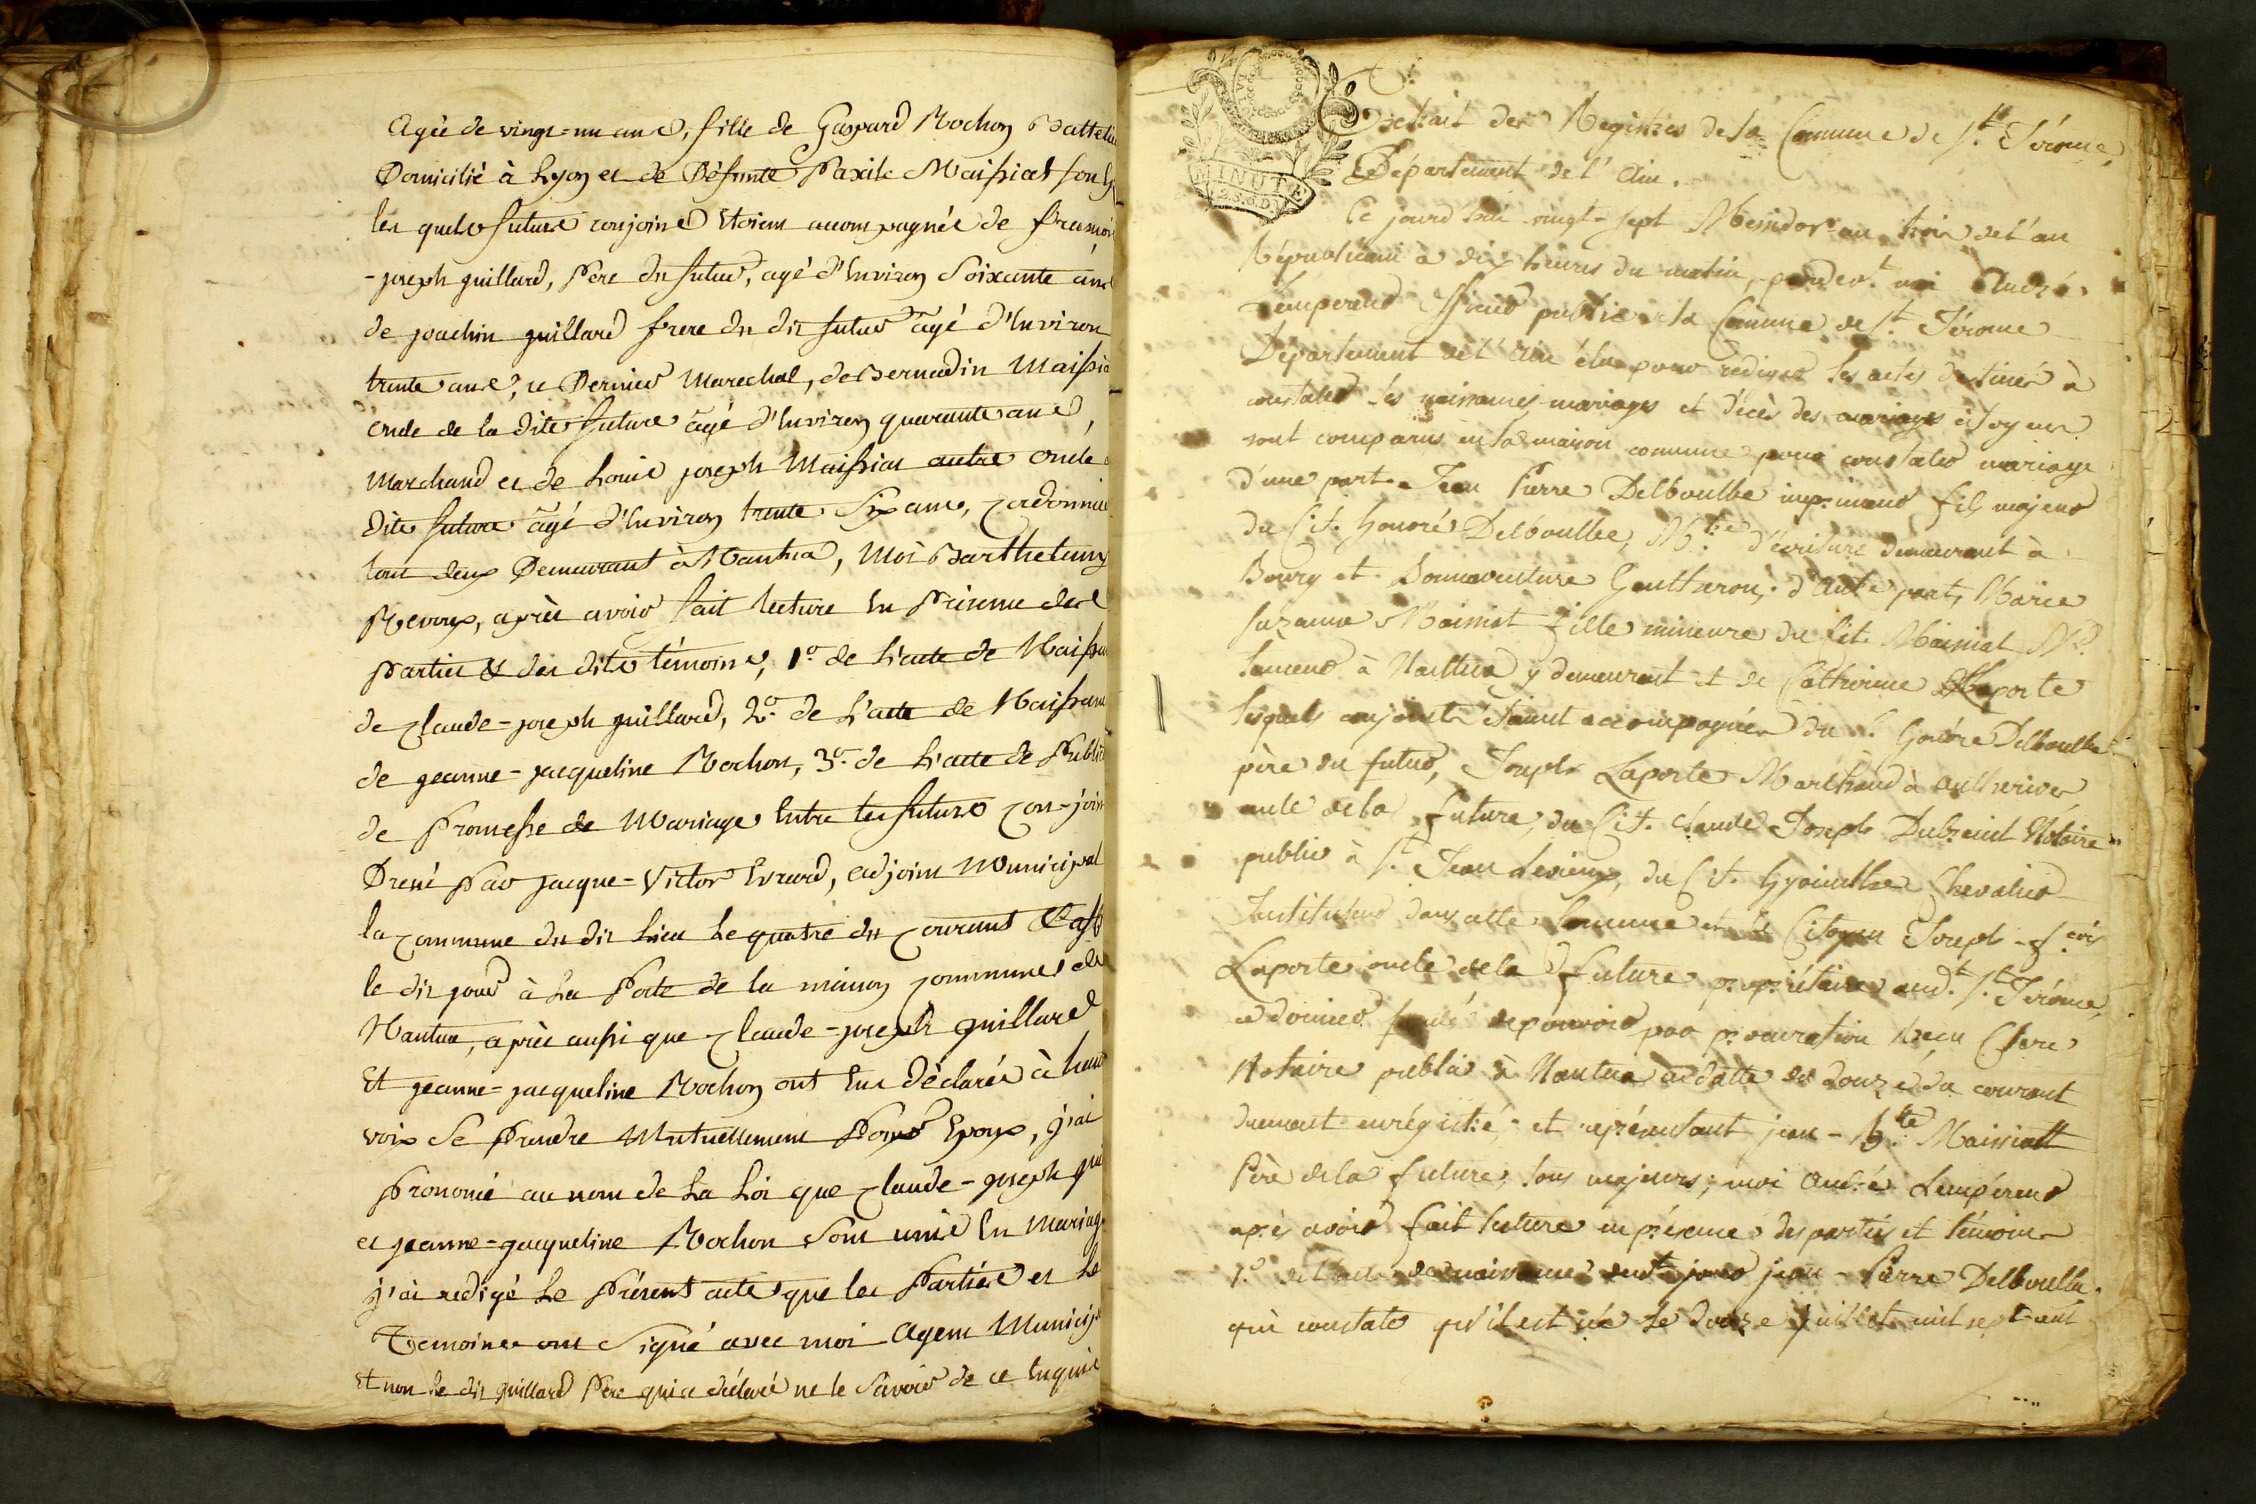 Agée de vingt-un ans, fille de Gaspard Rochon Battelie
Domicilié à Lyon et de Défunte Maissiat
les quels futurs conjoins étoient accompagnés de françoi
-joseph guillard, Père du futur, agé d'Environ Soixante ans
de joachin guillard frere du dit futur âgé d'Environ
trente ans, ce Dernier Marechal, de Bernadin Maissia
oncle de la dite future âgé d'Environ quarante ans,
Marchand et de Louis joseph Maissiat autre oncle
dite future âgé d'Environ trente Six ans, Cordonnie
tout deux Demeurant à Nantua, Moi Barthelemy
après avoir fait lecture En Présence des
Parties & des dits témoins, 1.° de L'acte de Naissa
de Claude-joseph guillard, 2.° de L'acte de Naissan
de jeanne-jacqueline Rochon, 3.° de L'acte de Public
de Promesse de Mariage Entre les futurs Con-join
Dressé Par jacque-Victor Evrard, adjoint Municipal
la Commune du dit Lieu Le quatre du Courant & aff
le dit jour à La Porte de la maison Commune de
Nantua, après aussi que Claude-joseph guillard
Et jeanne-jacqueline Rochon ont Eus déclarés à haut
voix Se Prendre Mutuellement Pour Epoux, j'ai
Prononcé au nom de La Loi que Claude-joseph gu
et jeanne-jacqueline Rochon Sont unis En Mariag
j'ai redigé Le Présent acte que les Parties et Le
Temoins ont Signé avec moi Agent Municip
Et non Le dit guillard Père qui a déclaré ne le Savoir de ce Enquis
MINUTE
Extrait des Registres de la Commune de S.t Jérome,
Département de l'Ain.
Ce jourd'hui vingt-sept Messidor an trois de l'an
Républicain à dix heures du matin, pardev.t moi André
Lempereur officier public de la Commune de S.t Jérome
Département de l'Ain élu pour rédiger les actes destinés à
constater les naissances mariages et décès des citoyens
sont comparus en la maison commune pour constater mariage
d'une part Jean Pierre Delboulbe imprimeur fils majeur
du Cit. Honoré Delboulbe, d'écriture demeurant à
Bourg et Bonnaventure d'autre part, Marie
Suzanne Maissiat fille mineure du Cit. Maissiat
à Nantua y demeurant et de Catherine Laporte
lesquels conjoints étaient accompagnés du Honoré Delboulbe
père du futur, Joseph Laporte Marchand à
oncle de la future, du Cit. Claude Joseph Notaire
public à S.t Jean Levieux, du Cit. Hyacinthe Chevalier
Instituteur dans cette Commune et le Citoyen Joseph
Laporte oncle de la future propriétaire aud.t S.t Jérome,
ce dernier fondé de pouvoir par procuration
Notaire public à Nantua en datte du douze du courant
duement enrégistré, et représentant jean-B.te Maissiatt
Père de la future, tous majeurs; moi André Lempéreur
après avoir fait lecture en présence des parties et témoins
1.° de l'acte de naissance jean-Pierre Delboulbe.
qui constate qu'il est né le douze juillet mil sept-cent